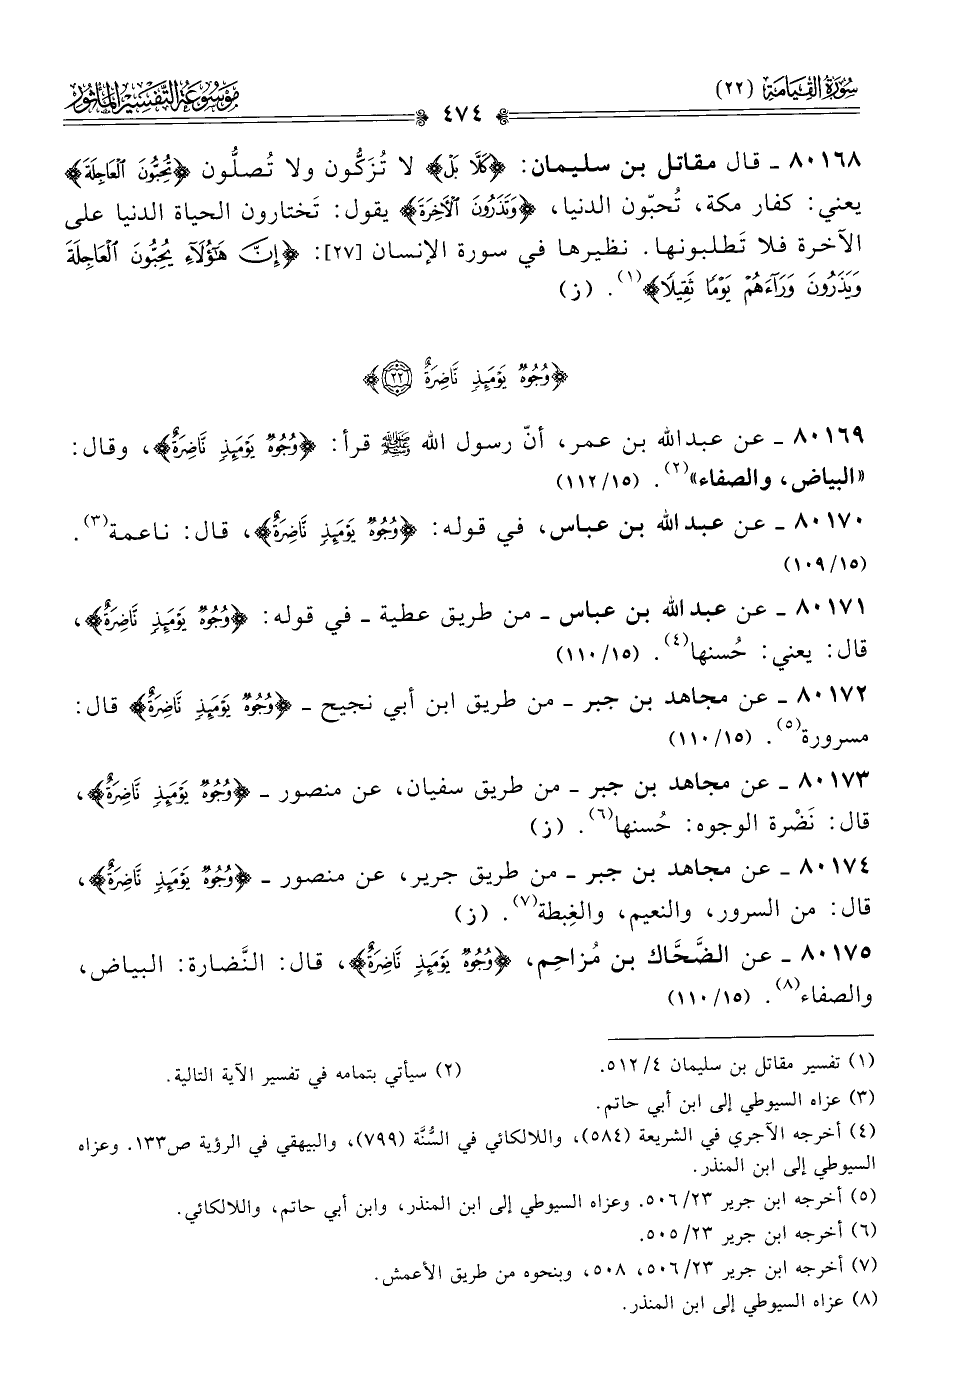 سُورَةُ القِيَامَةِ (٢٢)
مَوْسُوعَةُ التَّفْسِيرِ المَأْثُور
٤٧٤
٨٠١٦٨ ـ قال مقاتل بن سليمان: ﴿كَلَّا بَلْ﴾ لا تُزَكُّون ولا تُصلُّون ﴿تُحِبُّونَ ٱلْعَاجِلَةَ﴾
يعني: كفار مكة، تُحبّون الدنيا، ﴿وَتَذَرُونَ ٱلْآخِرَةَ﴾ يقول: تَختارون الحياة الدنيا على
الآخرة فلا تَطلبونها. نظيرها في سورة الإنسان [٢٧]: ﴿إِنَّ هَٰٓؤُلَآءِ يُحِبُّونَ ٱلْعَاجِلَةَ
وَيَذَرُونَ وَرَآءَهُمْ يَوْمًا ثَقِيلًا﴾(١). (ز)
﴿وُجُوهٌ يَوْمَئِذٍ نَّاضِرَةٌ ٢٢﴾
٨٠١٦٩ ـ عن عبدالله بن عمر، أنّ رسول الله ﷺ قرأ: ﴿وُجُوهٌ يَوْمَئِذٍ نَّاضِرَةٌ﴾، وقال:
«البياض، والصفاء»(٢). (١١٢/١٥)
٨٠١٧٠ ـ عن عبدالله بن عباس، في قوله: ﴿وُجُوهٌ يَوْمَئِذٍ نَّاضِرَةٌ﴾، قال: ناعمة(٣).
(١٠٩/١٥)
٨٠١٧١ ـ عن عبدالله بن عباس ـ من طريق عطية ـ في قوله: ﴿وُجُوهٌ يَوْمَئِذٍ نَّاضِرَةٌ﴾،
قال: يعني: حُسنها(٤). (١١٠/١٥)
٨٠١٧٢ ـ عن مجاهد بن جبر ـ من طريق ابن أبي نجيح ـ ﴿وُجُوهٌ يَوْمَئِذٍ نَّاضِرَةٌ﴾ قال:
مسرورة(٥). (١١٠/١٥)
٨٠١٧٣ ـ عن مجاهد بن جبر ـ من طريق سفيان، عن منصور ـ ﴿وُجُوهٌ يَوْمَئِذٍ نَّاضِرَةٌ﴾،
قال: نَضْرة الوجوه: حُسنها(٦). (ز)
٨٠١٧٤ ـ عن مجاهد بن جبر ـ من طريق جرير، عن منصور ـ ﴿وُجُوهٌ يَوْمَئِذٍ نَّاضِرَةٌ﴾،
قال: من السرور، والنعيم، والغِبطة(٧). (ز)
٨٠١٧٥ ـ عن الضَّحَّاك بن مُزاحِم، ﴿وُجُوهٌ يَوْمَئِذٍ نَّاضِرَةٌ﴾، قال: النَّضارة: البياض،
والصفاء(٨). (١١٠/١٥)
(١) تفسير مقاتل بن سليمان ٤/ ٥١٢.
(٢) سيأتي بتمامه في تفسير الآية التالية.
(٣) عزاه السيوطي إلى ابن أبي حاتم.
(٤) أخرجه الآجري في الشريعة (٥٨٤)، واللالكائي في السُّنَّة (٧٩٩)، والبيهقي في الرؤية ص١٣٣. وعزاه
السيوطي إلى ابن المنذر.
(٥) أخرجه ابن جرير ٢٣/ ٥٠٦. وعزاه السيوطي إلى ابن المنذر، وابن أبي حاتم، واللالكائي.
(٦) أخرجه ابن جرير ٢٣/ ٥٠٥.
(٧) أخرجه ابن جرير ٢٣/ ٥٠٦، ٥٠٨، وبنحوه من طريق الأعمش.
(٨) عزاه السيوطي إلى ابن المنذر.